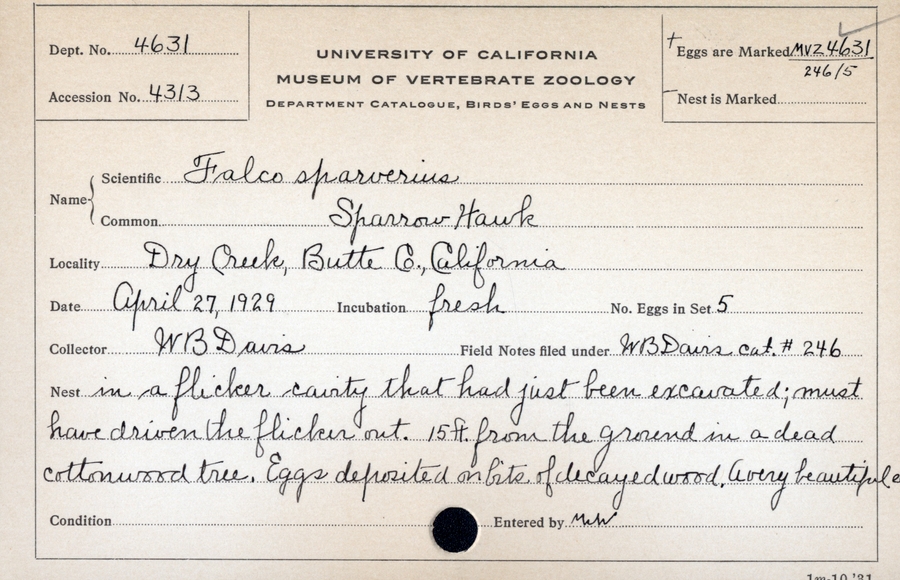 Dept. No. 4631
Accession No. 4313
UNIVERSITY OF CALIFORNIA
MUSEUM OF VERTEBRATE ZOOLOGY
DEPARTMENT CATALOGUE, BIRDS' EGGS AND NESTS
+ Eggs are Marked MVZ 4631
246/5
— Nest is Marked
Name Scientific Falco sparverius
Common Sparrow Hawk
Locality Dry Creek, Butte Co., California
Date April 27, 1929 Incubation fresh No. Eggs in Set 5
Collector WB Davis Field Notes filed under WB Davis cat. # 246
Nest in a flicker cavity that had just been excavated; must
have driven the flicker out. 15 ft. from the ground in a dead
cottonwood tree. Eggs deposited on bits of decayed wood. A very beautiful
Condition Entered by
1m-10,'31